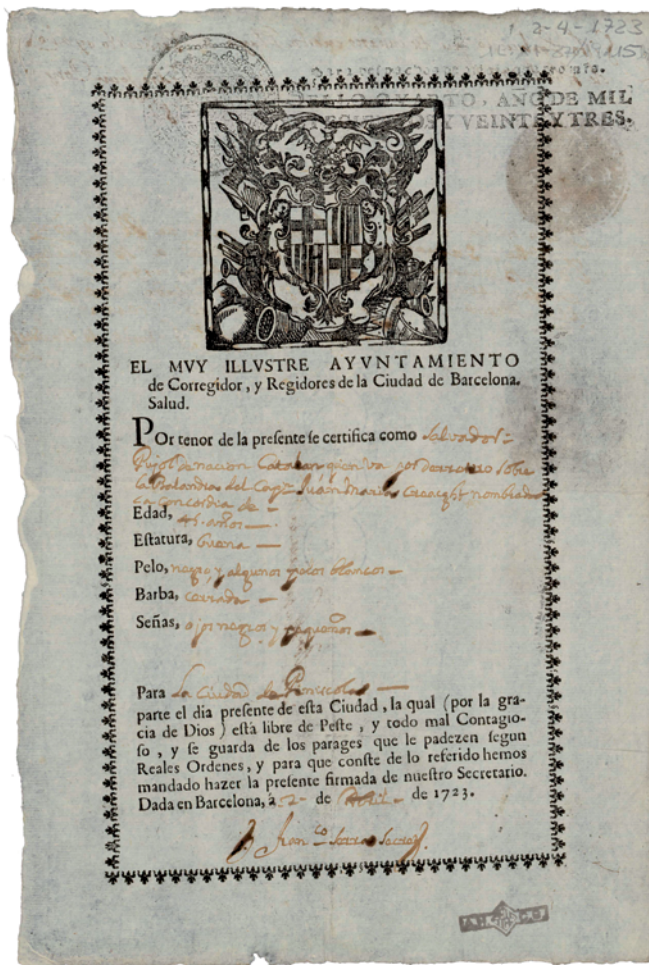 2-4-1723
SELLO QUARTO, AÑO DE MIL
SETECIENTOS Y VEINTE Y TRES.
EL MVY ILLVSTRE AYVNTAMIENTO
de Corregidor, y Regidores de la Ciudad de Barcelona.
Salud.
POr tenor de la preſente ſe certifica como Salvador
Pujol de nacion Catalan quien va por derrotero sobre
la Balandra del Capn Juan nombrada
la Concordia de
Edad, 45 años
Eſtatura, buena
Pelo, negro y algunos pelos blancos
Barba, cerrada
Señas, ojos negros y pequeños
Para La Ciudad de Peniscola
parte el dia preſente de eſta Ciudad, la qual (por la gra-
cia de Dios) eſtá libre de Peſte, y todo mal Contagio-
ſo, y ſe guarda de los parages que le padezen ſegun
Reales Ordenes, y para que conſte de lo referido hemos
mandado hazer la preſente firmada de nueſtro Secretario.
Dada en Barcelona, à 2 de Abril de 1723.